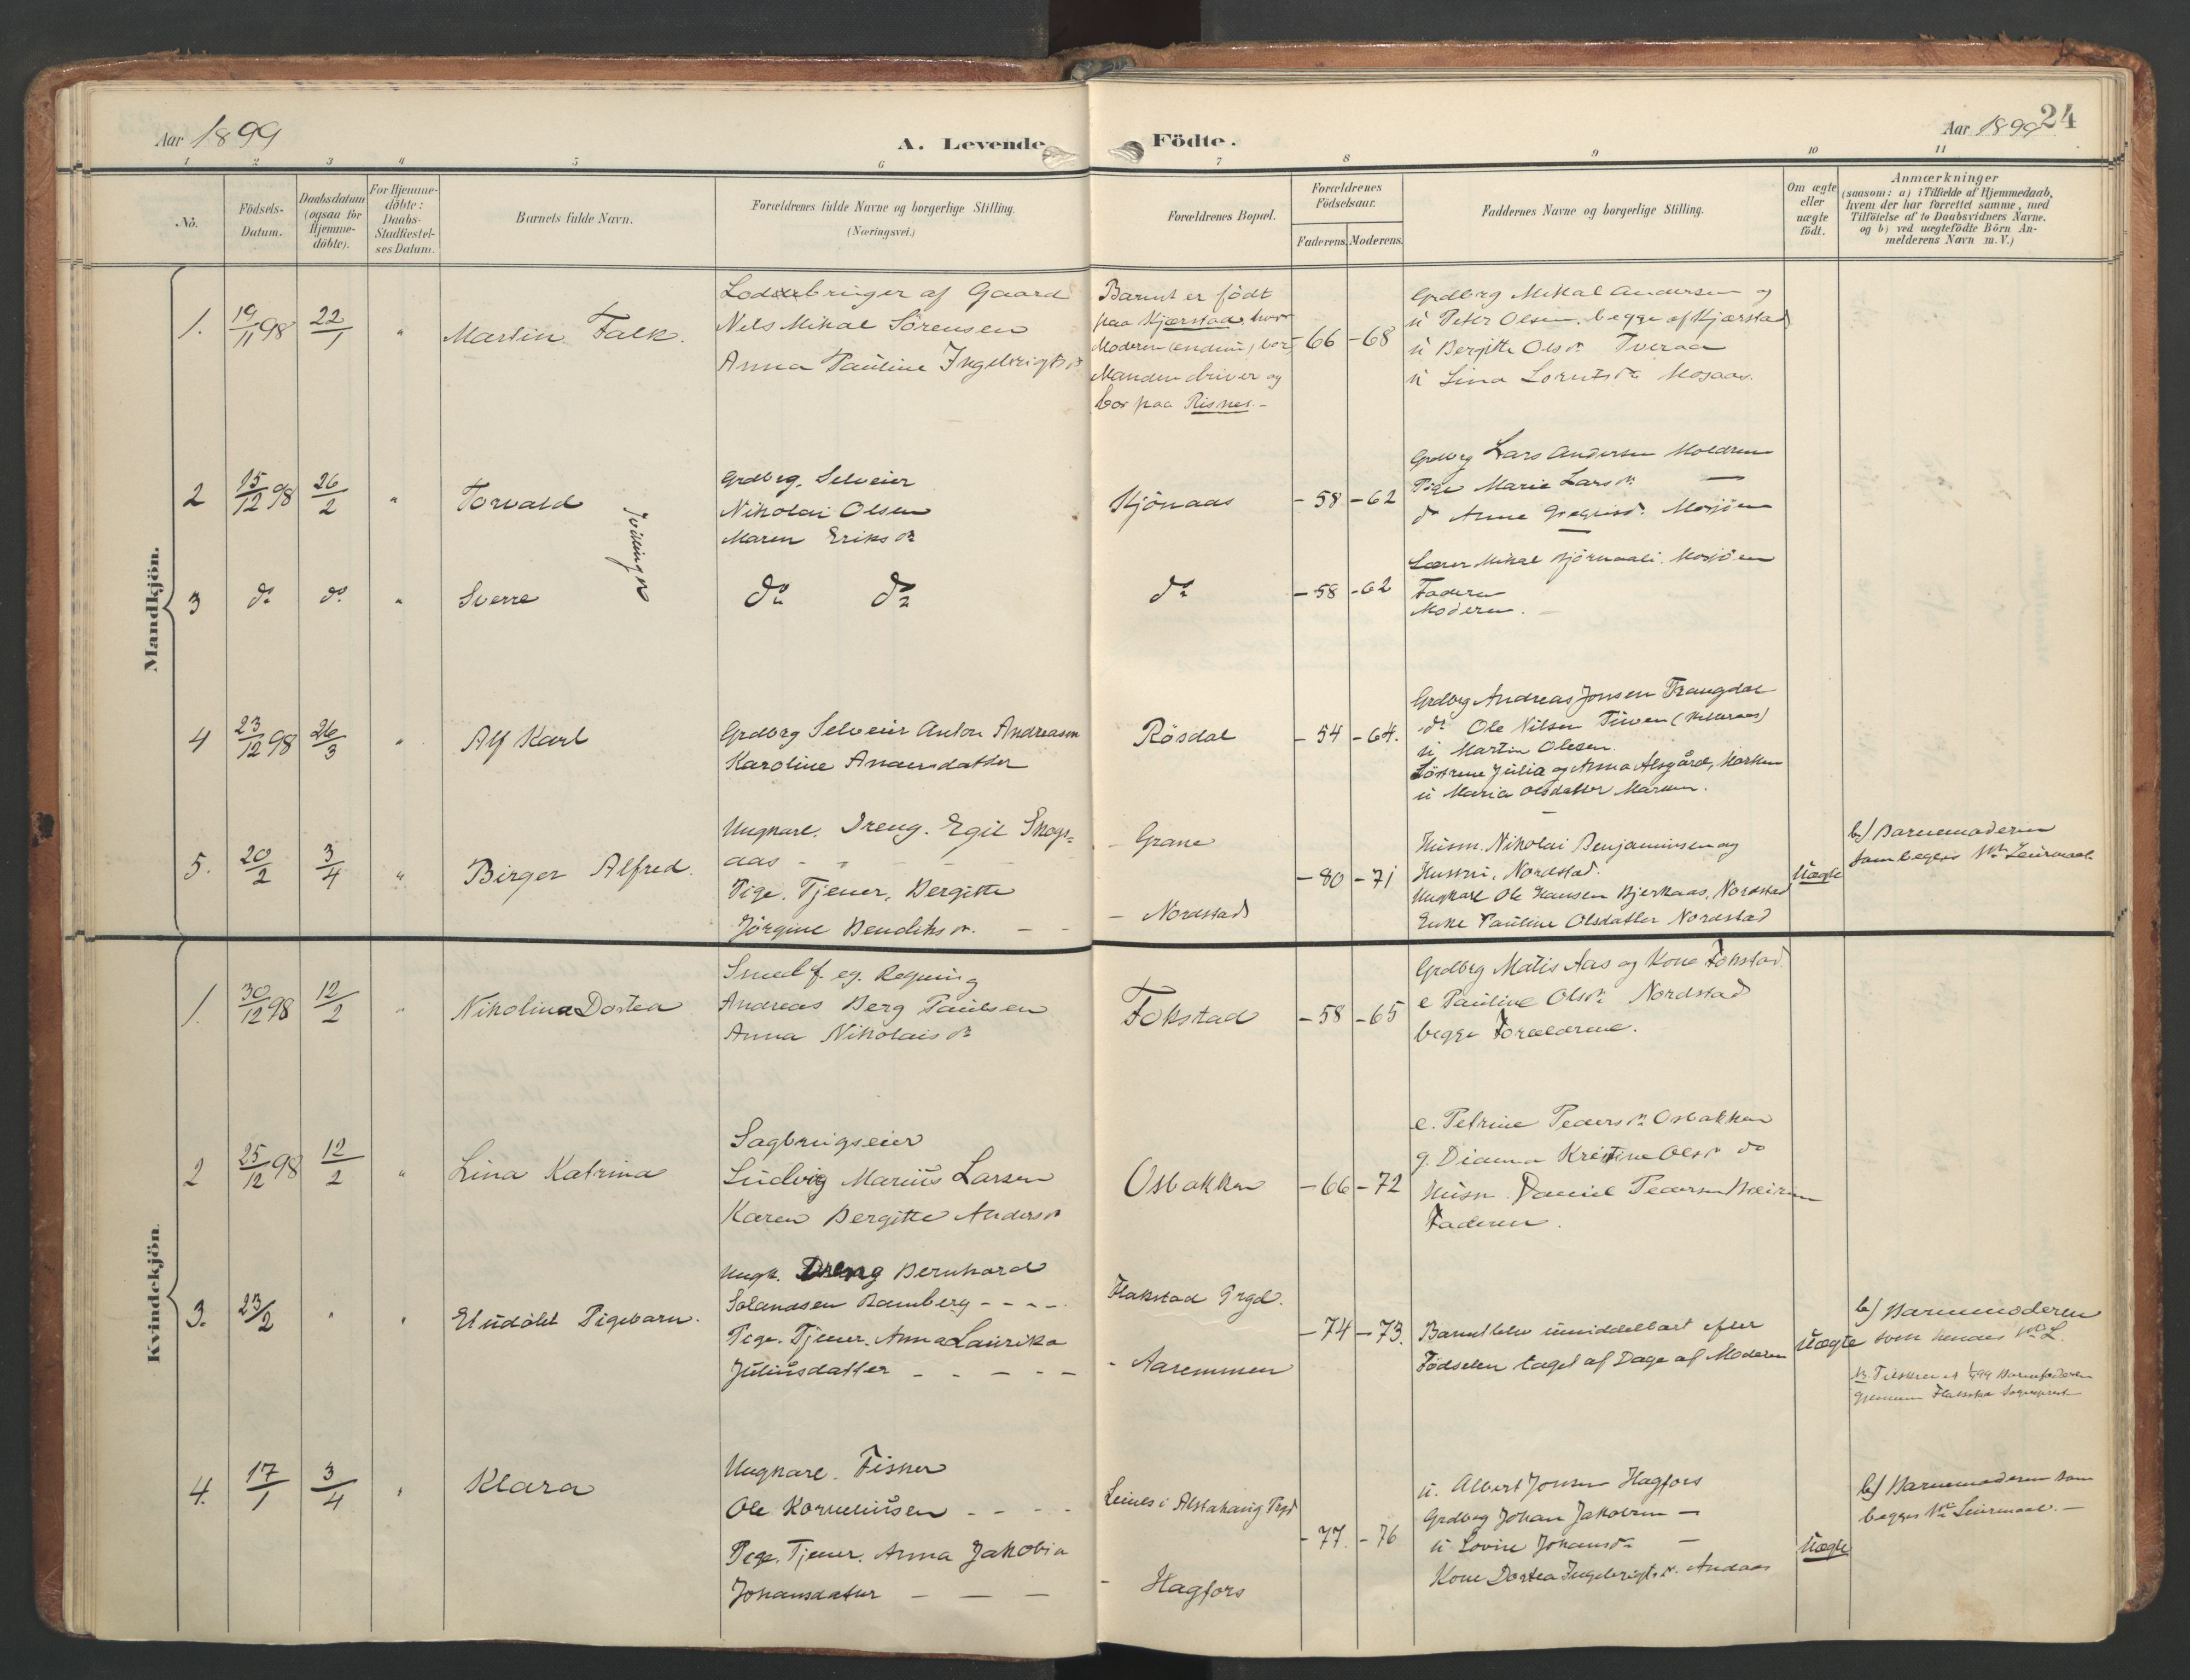 Aar 1899
A. Levende
Födte.
Aar 1899
24
1 2 3 4 5 6 7 8 9 10 11
No.
Födsels-
Datum.
Daabsdatum
(ogsaa for
Hjemme-
döbte).
For Hjemme-
döbte:
Daabs-
Stadfæstel-
ses Datum.
Barnets fulde Navn.
Forældrenes fulde Navne og borgerlige Stilling.
(Næringsvei.)
Forældrenes Bopæl.
Forældrenes
Födselsaar.
Faderens. Moderens.
Faddernes Navne og borgerlige Stilling.
Om ægte
eller
uægte
födt.
Anmærkninger
(saasom: a) i Tilfælde af Hjemmedaab,
hvem der har forrettet samme, med
Tilföielse af to Daabsvidners Navne.
og b) ved uægtefödte Börn An-
melderens Navn m. V.)
Mandkjön.
1. 19/11 98 22/1 " Martin Falk.
Nels Mikal Sörensen
Anna Pauline Ingebrigtsdr
Barnet er födt
paa Kjærstad, hvor
Moderen (endnu) bor,
Manden driver og
bor paa Risnes.-
-66 -68
Grdbrg Mikal Andersen og
u Peter Olsen. begge af Kjærstad
u Bergitte Olsdr Tveraa
u Lina Lorntsdr Mosaas.
2 15/12 98 26/2 " Torvald
Tvillinger
Grdbrg. Selveier
Nikolai Olsen
Maren Eriksdr
Kjönaas
-58 -62
Grdbrg Lars Andersen Moldrem
Pige Marie Larsdr —
do Anne Mosjöen
3 do do " Sverre
do do
do
-58 -62
Lærer Mikal Mosjöen
Faderen
Moderen. -
4 23/12 98 26/3 " Alf Karl
Grdbrg Selveier Anton Andreasen
Karoline Andersdatter
Rösdal
-54 -64.
Grdbrg Andreas Jonsen Trangdal
do Ole Nilsen
u Martin Olesen.
Söstrene Julia og Anna Alsgård, Marken
u Maria Olsdatter Marken.
5. 20/2 3/4 " Birger Alfred.
Ungkarl. Dreng. Egil Skogs=
aas - - - -
Pige. Tjener, Bergitte
Jörgine Bendiksdr. - -
- Grane
- Nordstad
-80 -71
Husm. Nikolai Benjaminsen og
Hustru, Nordstad.
Ungkarl Ole Hansen Bjerkaas, Nordstad
Enke Pauline Olsdatter Nordstad
Uægte
b) Barnemoderen
som begges
Kvindekjön
1. 30/12 98 12/2 " Nikoline Dortea
Smed f. eg. Regning
Andreas Berg Paulsen
Anna Nikolaisdr
Fokstad
-58 -65
Grdbrg Matis Aas og Kone Fokstad.
e Pauline Olsdr Nordstad
begge Forældrene.
2 25/12 98 12/2 " Lina Katrina
Sagbrugseier
Ludvig Marius Larsen
Karen Bergitte Andersdr
Osbakken
-66 -72
e. Petrine Pedersdr Osbakken
g. Diana Kristine Olsdr do
Husm. Daniel Pedersen
Faderen.
3. 23/2 " " Et udöbt Pigebarn.
Ungk. Dreng Bernhard
Bamberg - - - -
Pige. Tjener. Anna Laurika
Juliusdatter - - - - -
Flakstad Prgd.
- Aaremmen
-74 -73.
Barnet blev umiddelbart efter
Födselen taget af Dage af Moderen
Uægte
b) Barnemoderen
som hendes
gjennem Flakstad Sogneprest
4. 17/1 3/4 " Klara
Ungkarl. Fisker
Ole Korneliusen - - - -
Pige. Tjener. Anna Jakobia
Johansdatter - - -
Leines i Alstahaug Prgd
- Hagfors
-77. -76
u. Albert Jonsen Hagfors
Grdbrg Johan Jakobsen —
u Lovise Johansdr —
Kone Dortea Ingebrigtsdr. Andaas
Uægte
b) Barnemoderen som
begges